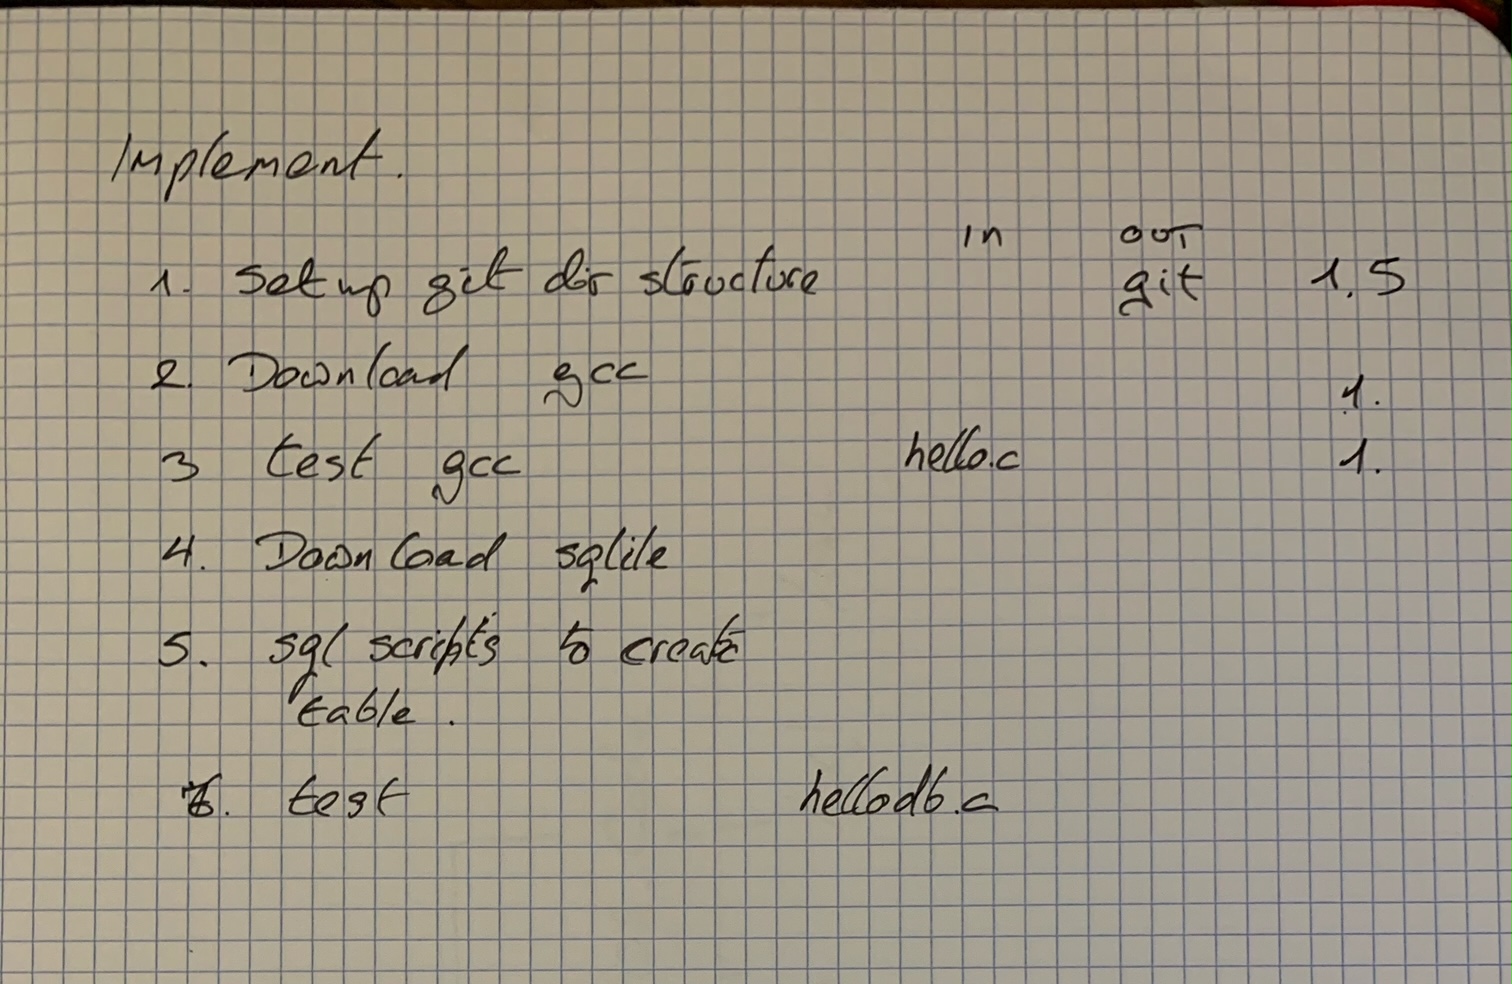 Implement.
in out
1. Set up git dir structure git 1.5
2. Download gcc 1.
3 test gcc hello.c 1.
4. Download sqlite
5. sql scripts to create
table.
6. test hellodb.c